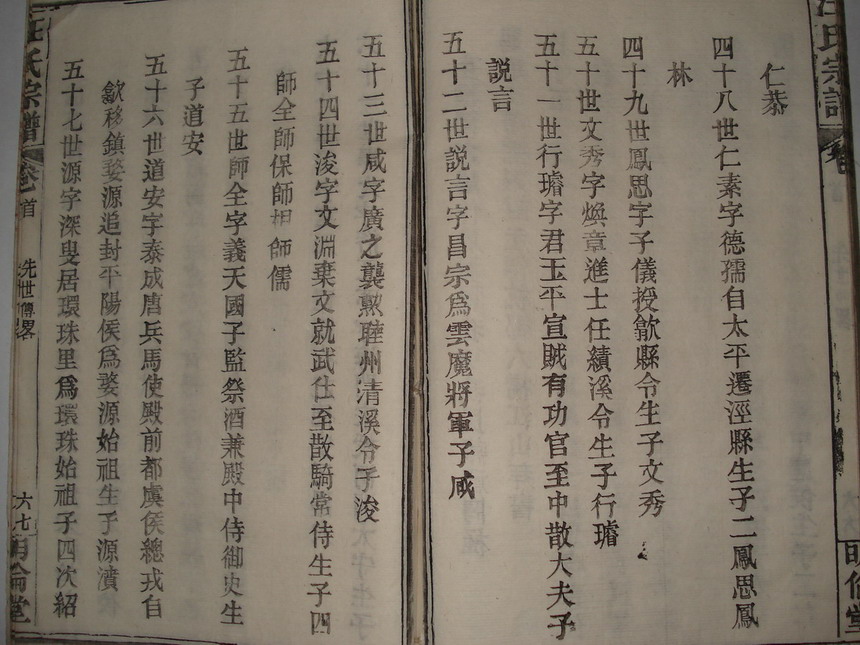 汪氏宗譜
明倫堂
仁恭
四十八世仁素字德孺自太平遷涇縣生子二鳳思鳳
林
四十九世鳳思字子儀授歙縣令生子文秀
五十世文秀字煥章進士任績溪令生子行璿
五十一世行璿字君玉平宣賊有功官至中散大夫子
說言
五十二世說言字昌宗爲雲麾將軍子咸
五十三世咸字廣之襲歙睦州清溪令子浚
五十四世浚字文淵棄文就武仕至散騎常侍生子四
師全師保師相師儒
五十五世師全字義天國子監祭酒兼殿中侍御史生
子道安
五十六世道安字泰成唐兵馬使殿前都虞侯總戎自
歙移鎮婺源追封平陽侯爲婺源始祖生子源濆
五十七世源字深叟居環珠里爲環珠始祖子四次紹
汪氏宗譜
卷首
先世傳畧
六七
明倫堂